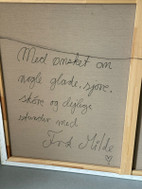 Med ønsket om
nogle glade, sjove,
skøre og dejlige
stunder med
Hilde